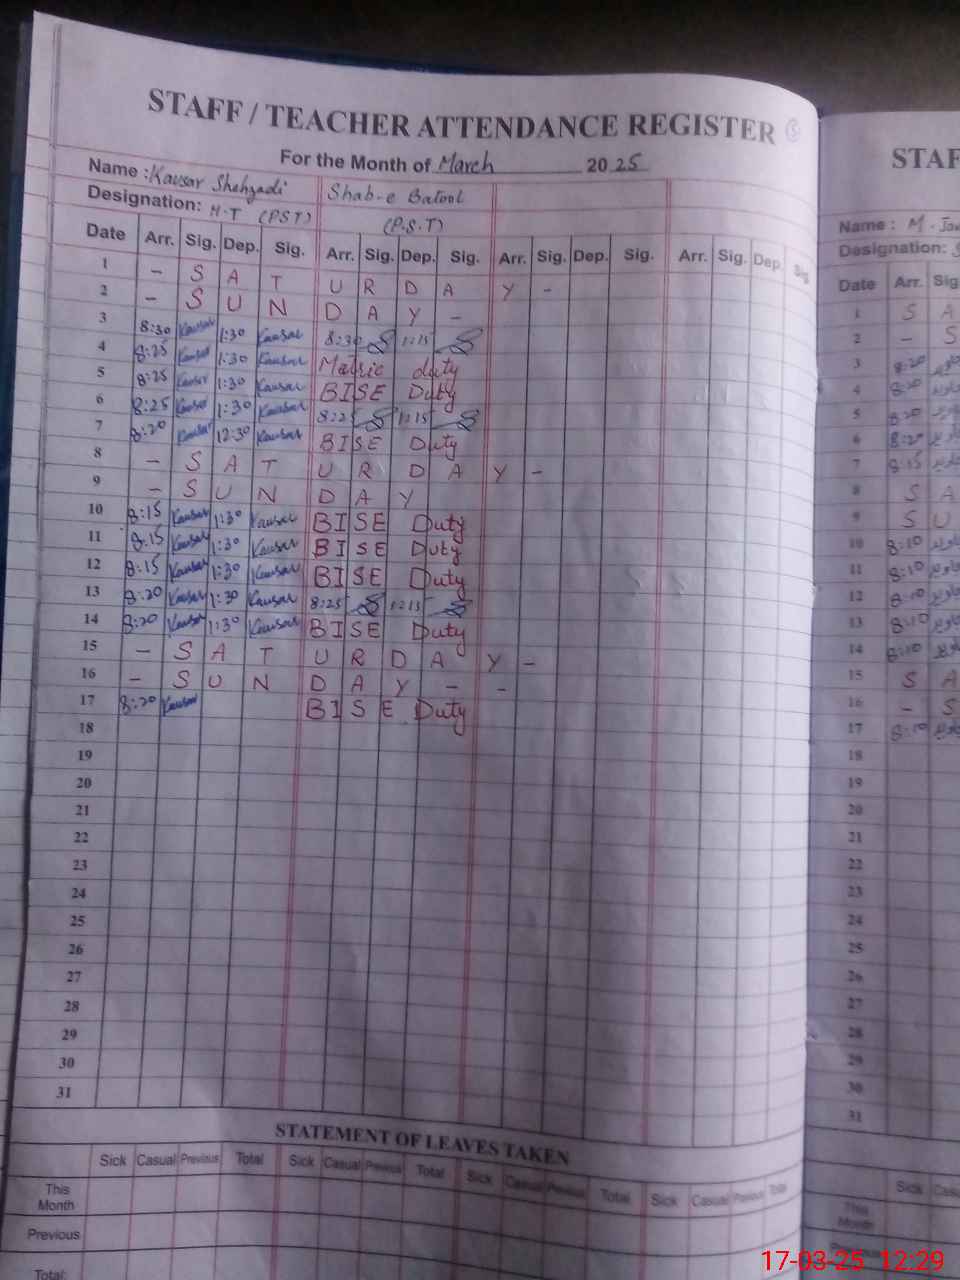 STAFF / TEACHER ATTENDANCE REGISTER
For the Month of March 2025
Name : Kausar Shehzadi Shab-e Batool
Designation: H.T (PST) (P.S.T)
Date Arr. Sig. Dep. Sig. Arr. Sig. Dep. Sig. Arr. Sig. Dep. Sig. Arr. Sig. Dep. Sig.
1 - S A T U R D A Y -
2 - S U N D A Y -
3 8:30 Kausar 1:30 Kausar 8:30 1:15
4 8:25 Kausar 1:30 Kausar Matric duty
5 8:25 Kausar 1:30 Kausar BISE Duty
6 8:25 Kausar 1:30 Kausar 8:25 1:15
7 8:20 Kausar 12:30 Kausar BISE Duty
8 - S A T U R D A Y -
9 - S U N D A Y
10 8:15 Kausar 1:30 Kausar BISE Duty
11 8:15 Kausar 1:30 Kausar BISE Duty
12 8:15 Kausar 1:30 Kausar BISE Duty
13 8:20 Kausar 1:30 Kausar 8:25 1:15
14 8:20 Kausar 1:30 Kausar BISE Duty
15 - S A T U R D A Y -
16 - S U N D A Y - -
17 8:20 Kausar BISE Duty
18
19
20
21
22
23
24
25
26
27
28
29
30
31
STATEMENT OF LEAVES TAKEN
Sick Casual Previous Total Sick Casual Previous Total Sick Casual Previous Total Sick Casual Previous Total
This Month
Previous
Total:
STAF
Name : M.
Designation:
Date Arr. Sig
1 S A
2 - S
3 8:20
4 8:20
5 8:20
6 8:20
7 8:15
8 S A
9 S U
10 8:10
11 8:10
12 8:10
13 8:10
14 8:10
15 S A
16 - S
17 8:10
18
19
20
21
22
23
24
25
26
27
28
29
30
31
Sick
This Month
Previous
17-03-25 12:29